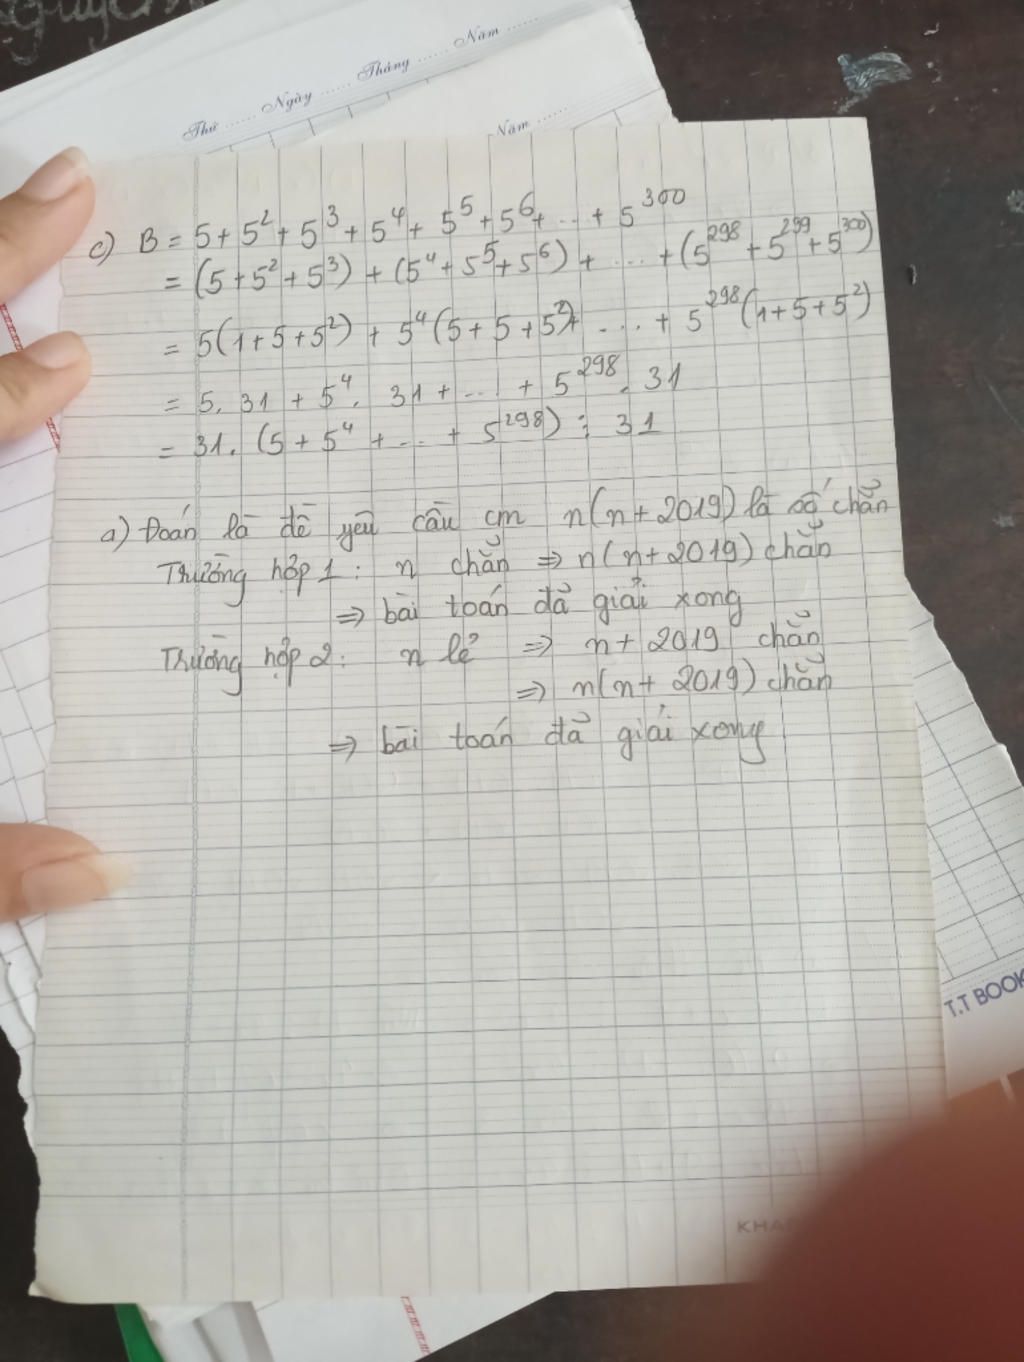 Thứ ...... Ngày ...... Tháng ...... Năm ......
Năm ......
c) B = 5 + 5² + 5³ + 5⁴ + 5⁵ + 5⁶ + ... + 5³⁰⁰
= (5 + 5² + 5³) + (5⁴ + 5⁵ + 5⁶) + ... + (5²⁹⁸ + 5²⁹⁹ + 5³⁰⁰)
= 5(1 + 5 + 5²) + 5⁴(5 + 5 + 5²) + ... + 5²⁹⁸(1 + 5 + 5²)
= 5. 31 + 5⁴. 31 + ... + 5²⁹⁸. 31
= 31. (5 + 5⁴ + ... + 5²⁹⁸) ⋮ 31
a) Đoán là đề yêu cầu cm n(n + 2019) là số chẵn
Trường hợp 1: n chẵn ⇒ n(n + 2019) chẵn
⇒ bài toán đã giải xong
Trường hợp 2: n lẻ ⇒ n + 2019 chẵn
⇒ n(n + 2019) chẵn
⇒ bài toán đã giải xong
T.T BOOK